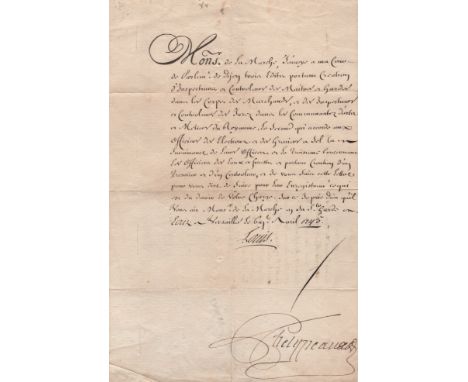 Mons. de la Marche, J'envoye a ma Cour
de Parlemt. de Dijon trois Edits portant Creation
d'Inspecteurs et Controleurs des Maitres et Gardes
dans les Corps des Marchands, et des Inspecteurs
et Controleurs des Jurez dans les Communautez d'arts
et Metiers du Royaume, le Second qui accorde aux
Officiers des Elections et des Greniers a Sel la
de leurs Offices, et le Troisieme concernant
les Officiers des Eaux et forests et portant Creation d'un
et d'un Controleur, et je vous fais cette lettre
pour vous dire de faire pour leur Enregistremt. ce qui
est du devoir de Votre Charge, Sur ce je prie Dieu qu'il
Vous ait Mons. de la Marche en sa Ste. garde
Ecrit a Versailles le Avril 1745.
Louis
Phelypeaux